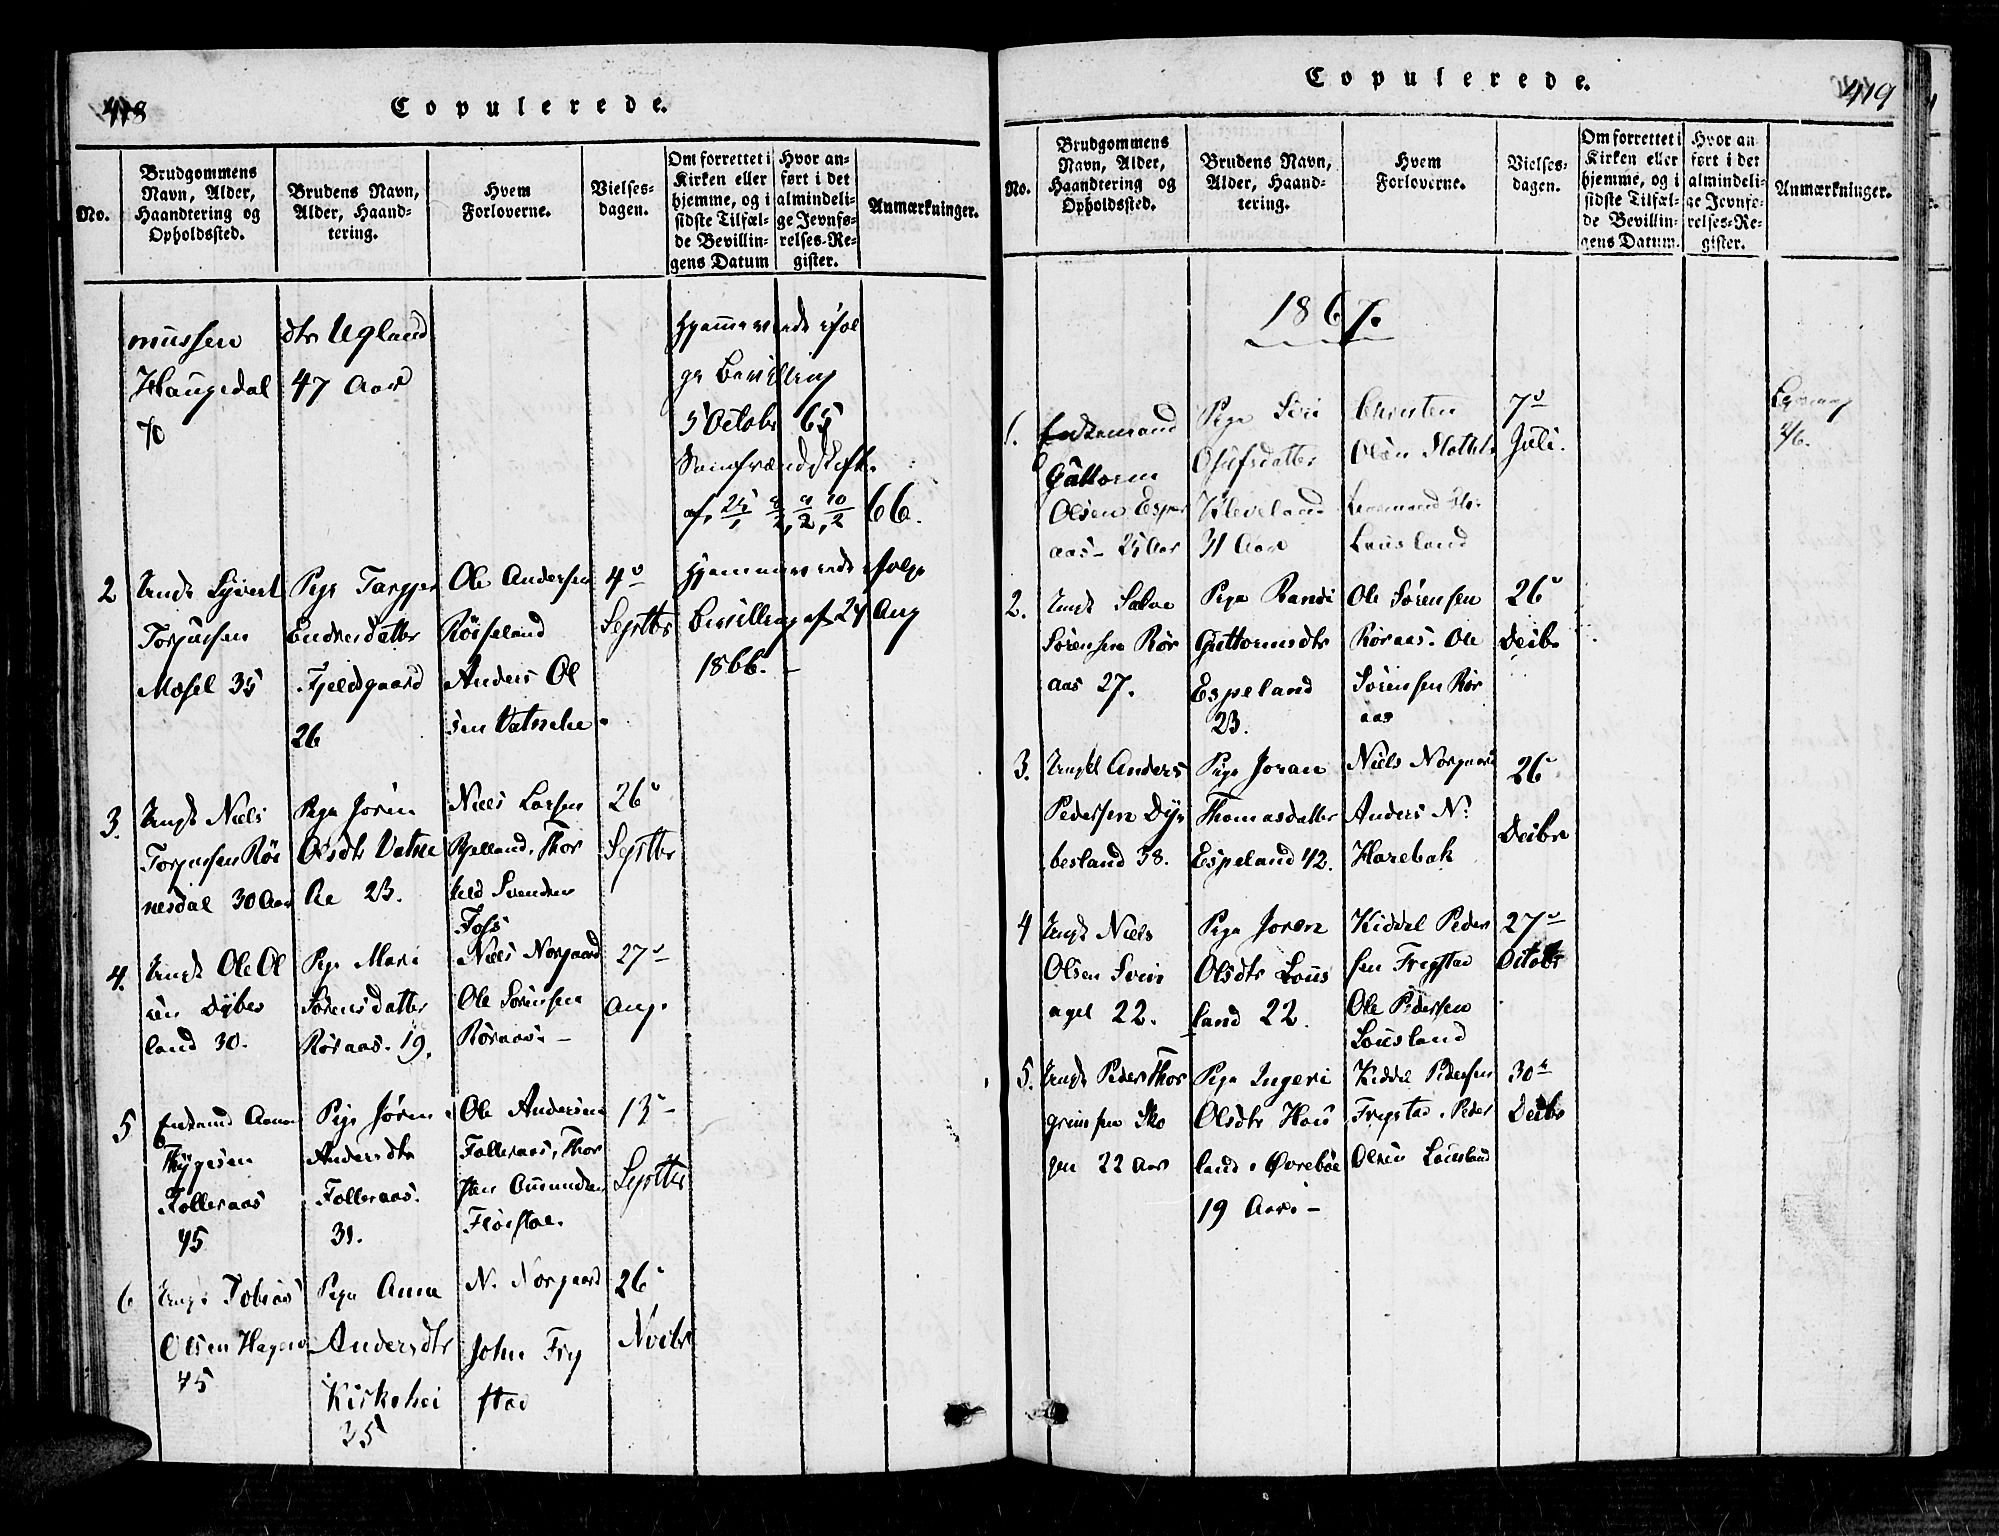 418
Copulerede.
No.
Brudgommens
Navn, Alder,
Haandtering og
Opholdssted.
Brudens Navn,
Alder, Haand-
tering.
Hvem
Forloverne.
Vielses-
dagen.
Om forrettet i
Kirken eller
hjemme, og i
sidste Tilfæl-
de Bevillin-
gens Datum
Hvor an-
ført i det
almindeli-
ge Jevnfø-
relses-Re-
gister.
Anmærkninger.
mussen
Haugedal
70
dtr Ugland
47 Aar
Hjemmeviede iføl
ge Bevilling
5 Octobr 65
af
66.
2
Ungk
Torjusen
Mosel 35
Pige Targjer
Endresdatter
Fjeldsgaard
26
Ole Andersen
Røiseland
Anders Ol
sen Vatneli
4
Septbr
Hjemmeviede ifølge
Bevilling af 24 Aug
1866. -
3.
Ungk Niels
Torjusen Røi
nesdal 30 Aar
Pige Jørin
Olsdtr Vatne
lie 23.
Niels Larsen
Bjelland, Thor
kild Svendsen
Foss
26
Septbr
4.
Ungk Ole Ol
sen Dybes
land 30.
Pige Mari
Sørensdatter
Røraas. 19.
Niels Norgaard
Ole Sørensen
Røraas. -
27
Aug.
5
Enkemd
Thygesen
Folleraas
45
Pige Jøren
Andersdtr
Folleraas.
31.
Ole Andersen
Folleraas, Thor
sten Omundsen
Fløistøl.
13
Septbr
6
Ungk Tobias
Olsen
45
Pige Anna
Andersdtr
Kirkehei
35
N. Norgaard
John Fry
stad
26
Novbr
419
Copulerede.
No.
Brudgommens
Navn, Alder,
Haandtering og
Opholdssted.
Brudens Navn,
Alder, Haand-
tering.
Hvem
Forloverne.
Vielses-
dagen.
Om forrettet i
Kirken eller
hjemme, og i
sidste Tilfæl-
de Bevillin-
gens Datum.
Hvor an
ført i det
almindeli-
ge Jevnfø-
relses-Re-
gister.
Anmærkninger.
1867.
1.
Enkemand
Guttorm
Olsen Espe
aas - 25 Aar
Pige Siri
Osufsdatter
Kleveland
31 Aar
Christen
Olsen
Lousland
7
Juli.
2.
Ungk Salve
Sørensen Rør
aas 27.
Pige Randi
Guttormsdtr
Espeland
23.
Ole Sørensen
Røraas. Ole
Sørensen Rør
aas
26
Decbr
3.
Ungkl Anders
Pedersen Dy
besland 38.
Pige Joran
Thomasdatter
Espeland 42.
Niels Norgaard
Anders N.
Harebak
26
Decbr
4
Ungk Niels
Olsen Svin
agel 22.
Pige Joren
Olsdtr Lous
land 22.
Kiddel Peder
sen Frystad
Ole Pedersen
Lousland
27
Octobr
5.
Ungk Peder Thor
grimsen Sko
gen 22 Aar
Pige Ingeri
Olsdtr Hou
land, Øvrebøe
19 Aar. -
Kiddel Pedersen
Frystad. Peder
Olsen Lousland
30
Decbr